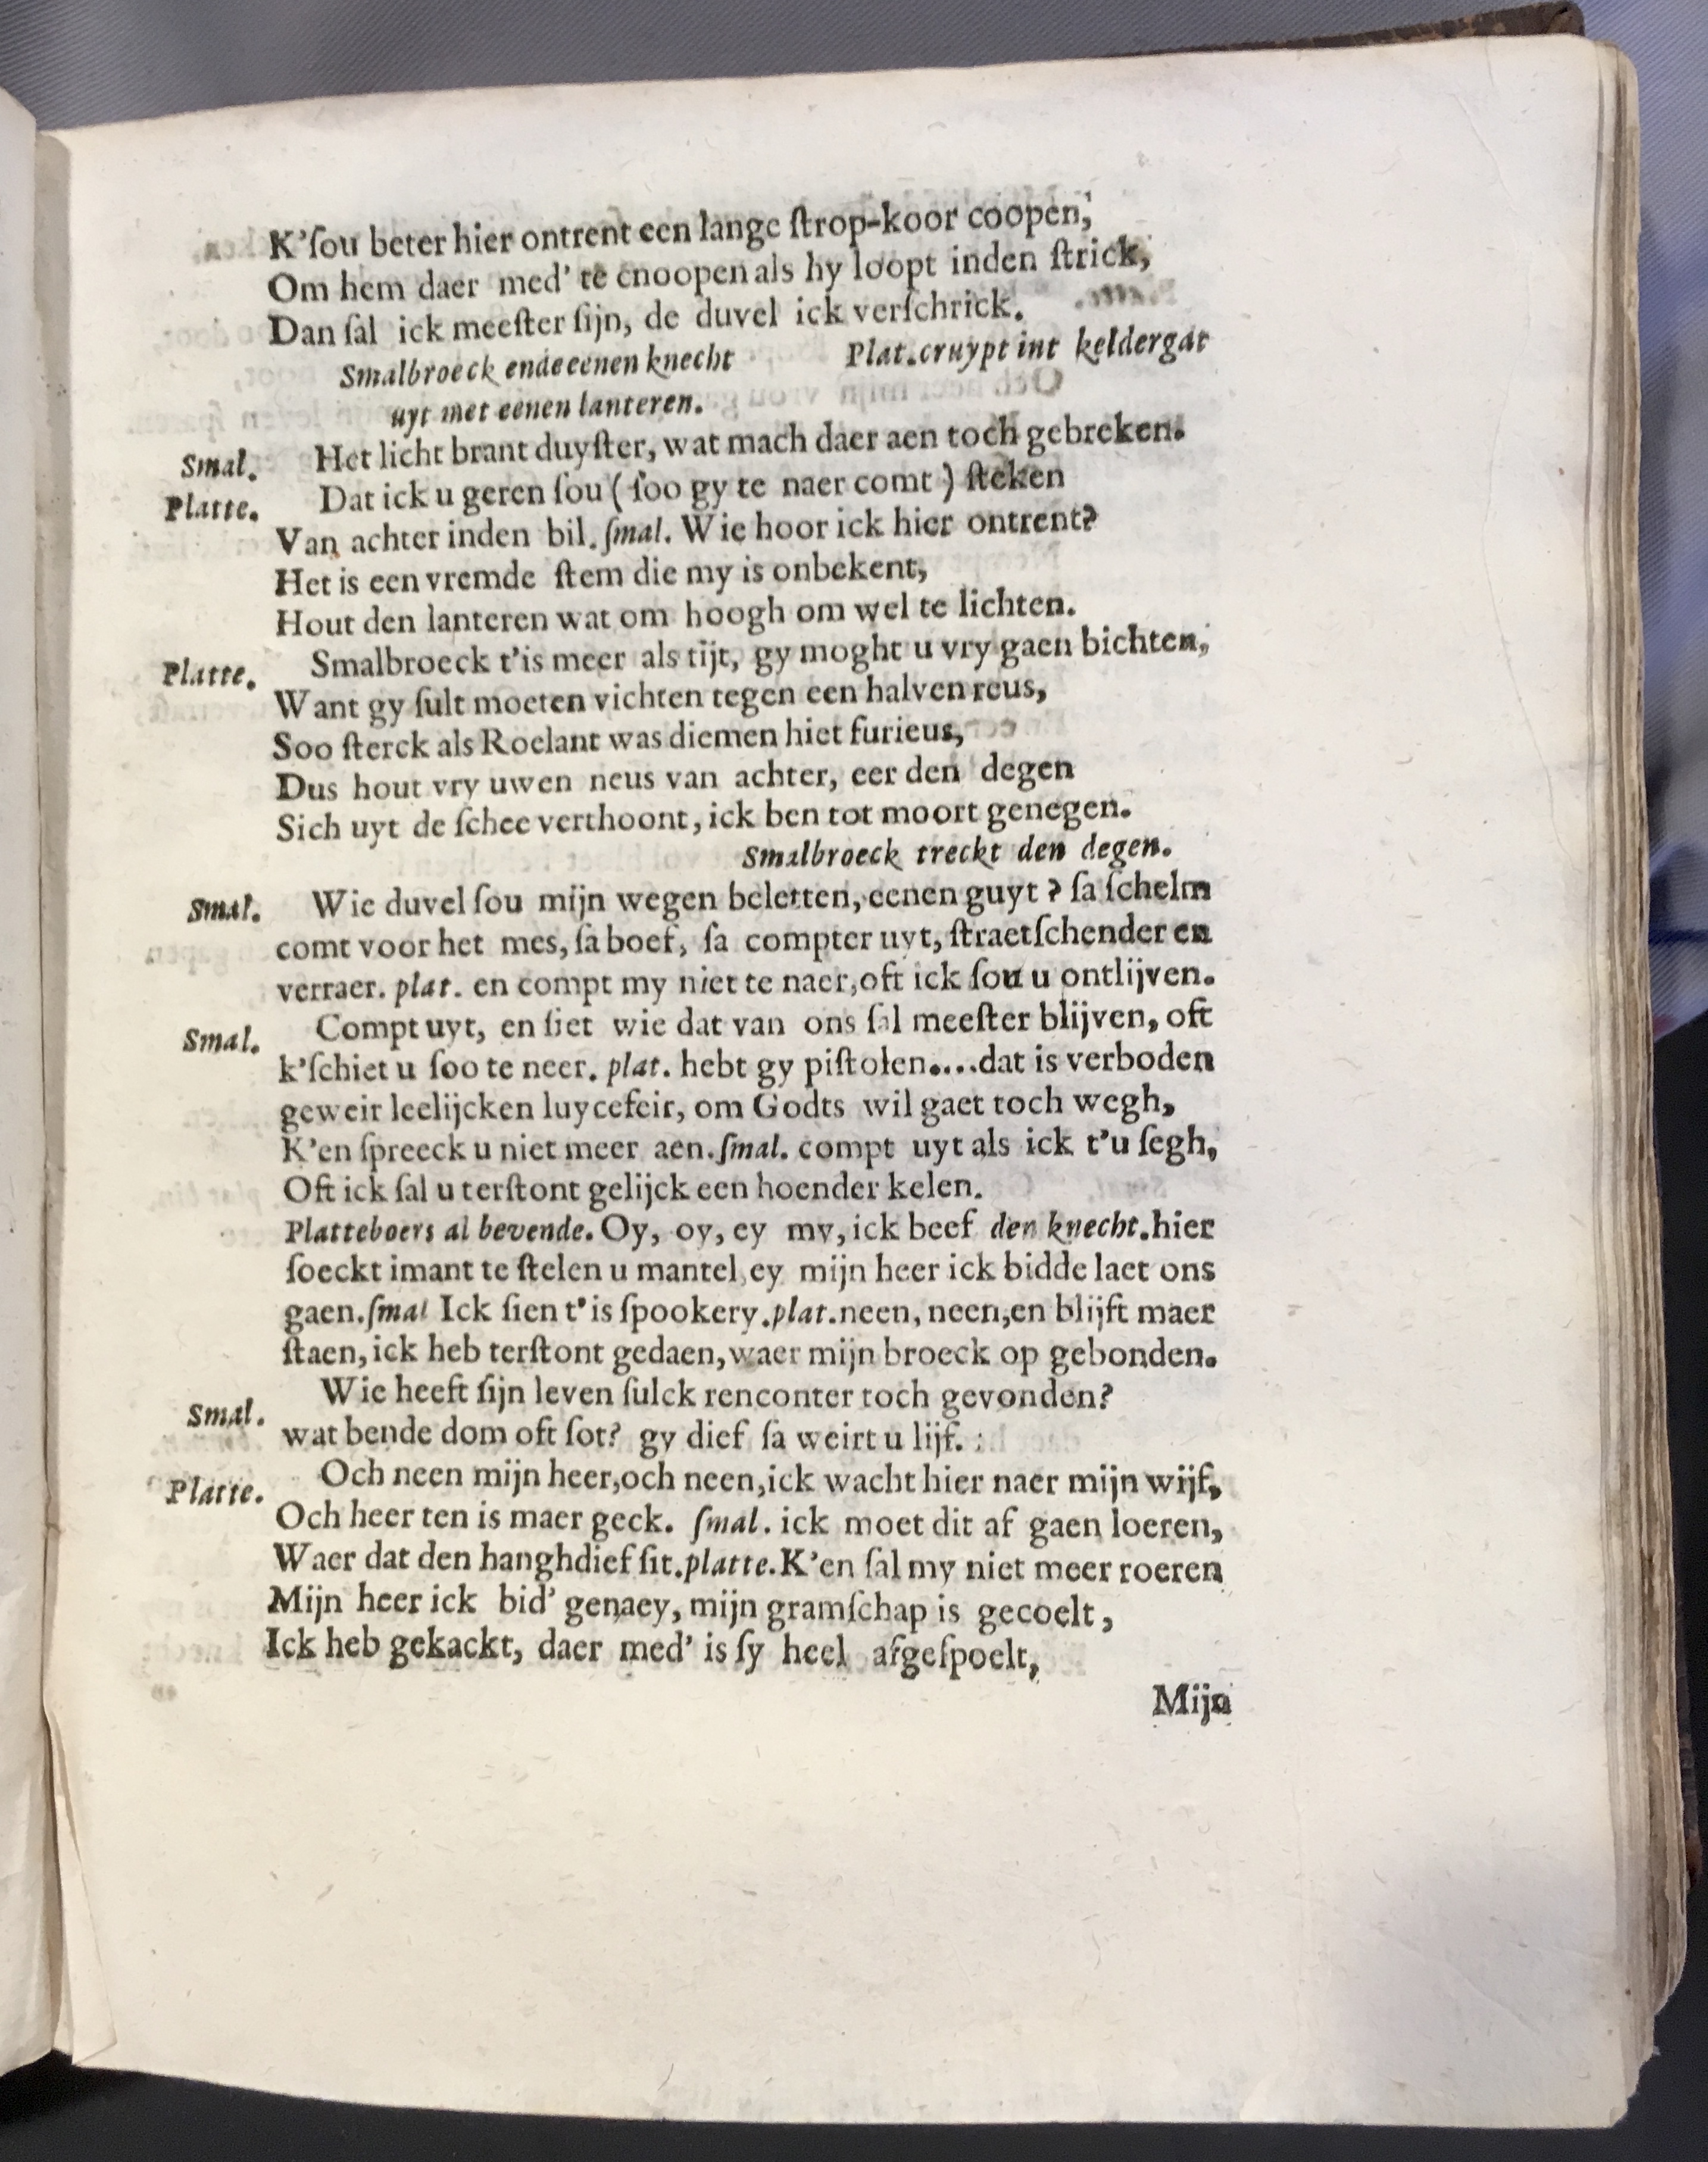 K'ſou beter hier ontrent een lange ſtrop-koor coopen,
Om hem daer med' te cnoopen als hy loopt inden ſtrick,
Dan ſal ick meeſter ſijn, de duvel ick verſchrick.
Smalbroeck ende eenen knecht Plat. cruypt int keldergat
uyt met eenen lanteren.
Smal. Het licht brant duyſter, wat mach daer aen toch gebreken.
Platte. Dat ick u geren ſou ( ſoo gy te naer comt ) ſteken
Van achter inden bil. ſmal. Wie hoor ick hier ontrent?
Het is een vremde ſtem die my is onbekent,
Hout den lanteren wat om hoogh om wel te lichten.
Platte. Smalbroeck t'is meer als tijt, gy moght u vry gaen bichten,
Want gy ſult moeten vichten tegen een halven reus,
Soo ſterck als Roelant was diemen hiet furieus,
Dus hout vry uwen neus van achter, eer den degen
Sich uyt de ſchee verthoont, ick ben tot moort genegen.
Smalbroeck treckt den degen.
Smal. Wie duvel ſou mijn wegen beletten, eenen guyt ? ſa ſchelm
comt voor het mes, ſa boef, ſa compter uyt, ſtraetſchender en
verraer. plat. en compt my niet te naer, oft ick ſou u ontlijven.
Smal. Compt uyt, en ſiet wie dat van ons ſal meeſter blijven, oft
k'ſchiet u ſoo te neer. plat. hebt gy piſtolen....dat is verboden
geweir leelijcken luycefeir, om Godts wil gaet toch wegh,
K'en ſpreeck u niet meer aen. ſmal. compt uyt als ick t'u ſegh,
Oft ick ſal u terſtont gelijck een hoender kelen.
Platteboers al bevende. Oy, oy, ey my, ick beef den knecht. hier
ſoeckt imant te ſtelen u mantel, ey mijn heer ick bidde laet ons
gaen. ſmal Ick ſien t'is ſpookery. plat. neen, neen, en blijft maer
ſtaen, ick heb terſtont gedaen, waer mijn broeck op gebonden.
Smal. Wie heeft ſijn leven ſulck renconter toch gevonden?
wat bende dom oft ſot? gy dief ſa weirt u lijf.
Platte. Och neen mijn heer, och neen, ick wacht hier naer mijn wijf,
Och heer ten is maer geck. ſmal. ick moet dit af gaen loeren,
Waer dat den hanghdief ſit. platte. K'en ſal my niet meer roeren
Mijn heer ick bid' genaey, mijn gramſchap is gecoelt,
Ick heb gekackt, daer med' is ſy heel afgeſpoelt,
Mijn